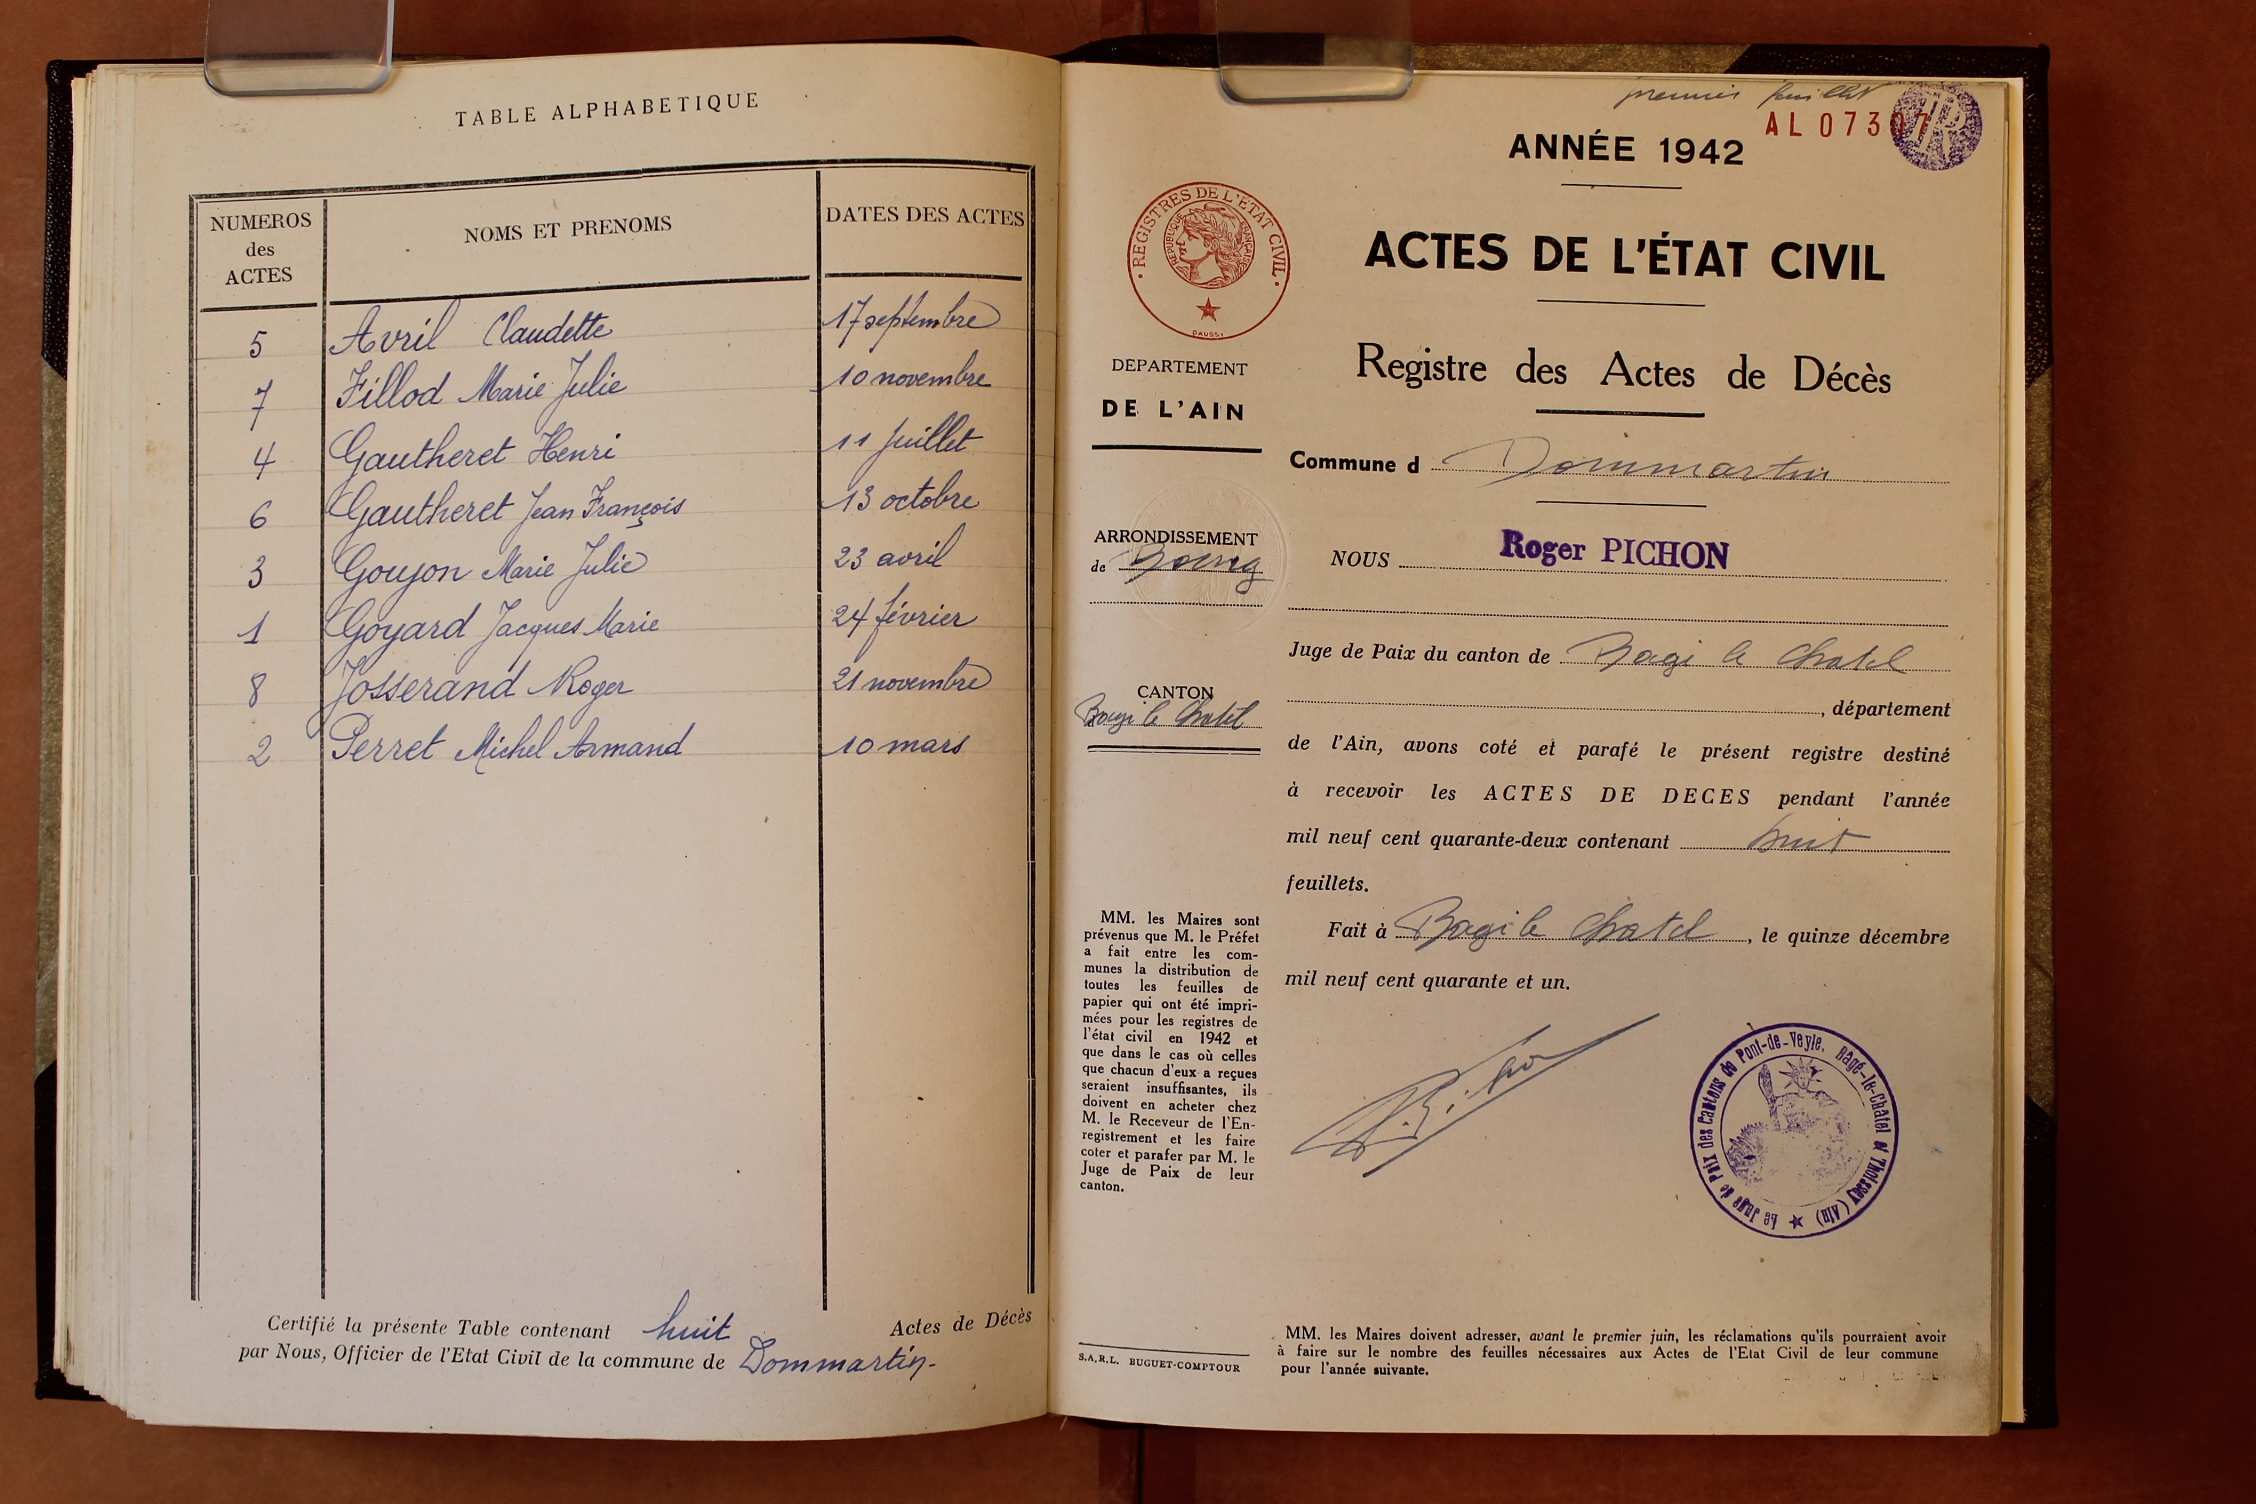 TABLE ALPHABETIQUE
NUMEROS des ACTES
NOMS ET PRENOMS
DATES DES ACTES
5 Avril Claudette 17 septembre
7 Fillod Marie Julie 10 novembre
4 Gautheret Henri 11 juillet
6 Gautheret Jean François 13 octobre
3 Goujon Marie Julie 23 avril
1 Goyard Jacques Marie 24 février
8 Josserand Roger 21 novembre
2 Perret Michel Armand 10 mars
Certifié la présente Table contenant huit Actes de Décès
par Nous, Officier de l'Etat Civil de la commune de Dommartin
premier feuillet
AL 073
ANNÉE 1942
REGISTRES DE L'ETAT CIVIL
REPUBLIQUE FRANÇAISE
DAUSSY
ACTES DE L'ÉTAT CIVIL
DEPARTEMENT
DE L'AIN
Registre des Actes de Décès
Commune d Dommartin
ARRONDISSEMENT
de Bourg
NOUS Roger PICHON
Juge de Paix du canton de Bagé le Chatel
, département
CANTON
Bagé le Chatel
de l'Ain, avons coté et parafé le présent registre destiné
à recevoir les ACTES DE DECES pendant l'année
mil neuf cent quarante-deux contenant huit
feuillets.
Fait à Bagé le Chatel, le quinze décembre
mil neuf cent quarante et un.
MM. les Maires sont
prévenus que M. le Préfet
a fait entre les com-
munes la distribution de
toutes les feuilles de
papier qui ont été impri-
mées pour les registres de
l'état civil en 1942 et
que dans le cas où celles
que chacun d'eux a reçues
seraient insuffisantes, ils
doivent en acheter chez
M. le Receveur de l'En-
registrement et les faire
coter et parafer par M. le
Juge de Paix de leur
canton.
Le Juge de Paix des Cantons de Pont-de-Veyle, Bagé-le-Châtel et Thoissey (Ain)
S.A.R.L. BUGUET-COMPTOUR
MM. les Maires doivent adresser, avant le premier juin, les réclamations qu'ils pourraient avoir
à faire sur le nombre des feuilles nécessaires aux Actes de l'Etat Civil de leur commune
pour l'année suivante.